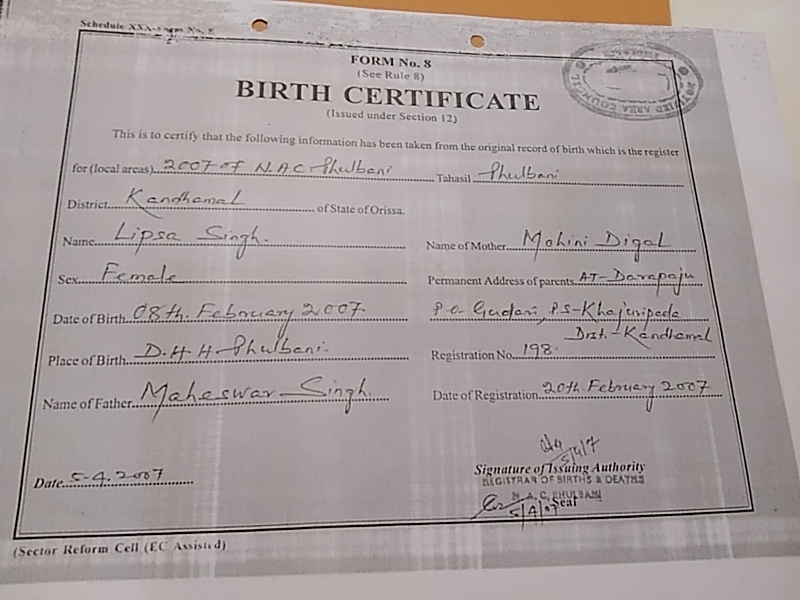 Schedule XXX-Form No. 8
FORM No. 8
(See Rule 8)
BIRTH CERTIFICATE
(Issued under Section 12)
This is to certify that the following information has been taken from the original record of birth which is the register
for (local areas) 2007 of N.A.C Phulbani Tahasil Phulbani
District Kandhamal of State of Orissa.
Name Lipsa Singh.
Sex Female
Date of Birth 08th. February 2007.
Place of Birth D.H.H. Phulbani.
Name of Father Maheswar Singh.
Name of Mother Mohini Digal
Permanent Address of parents AT-Darapaju
P.O. Gudari, P.S-Khajuripada
Dist.-Kandhamal
Registration No. 198.
Date of Registration 20th. February 2007
Date 5-4.2007
5/4/7
Signature of Issuing Authority
REGISTRAR OF BIRTHS & DEATHS
N. A. C. PHULBANI
Seal
5/4/07
(Sector Reform Cell (EC Assisted)